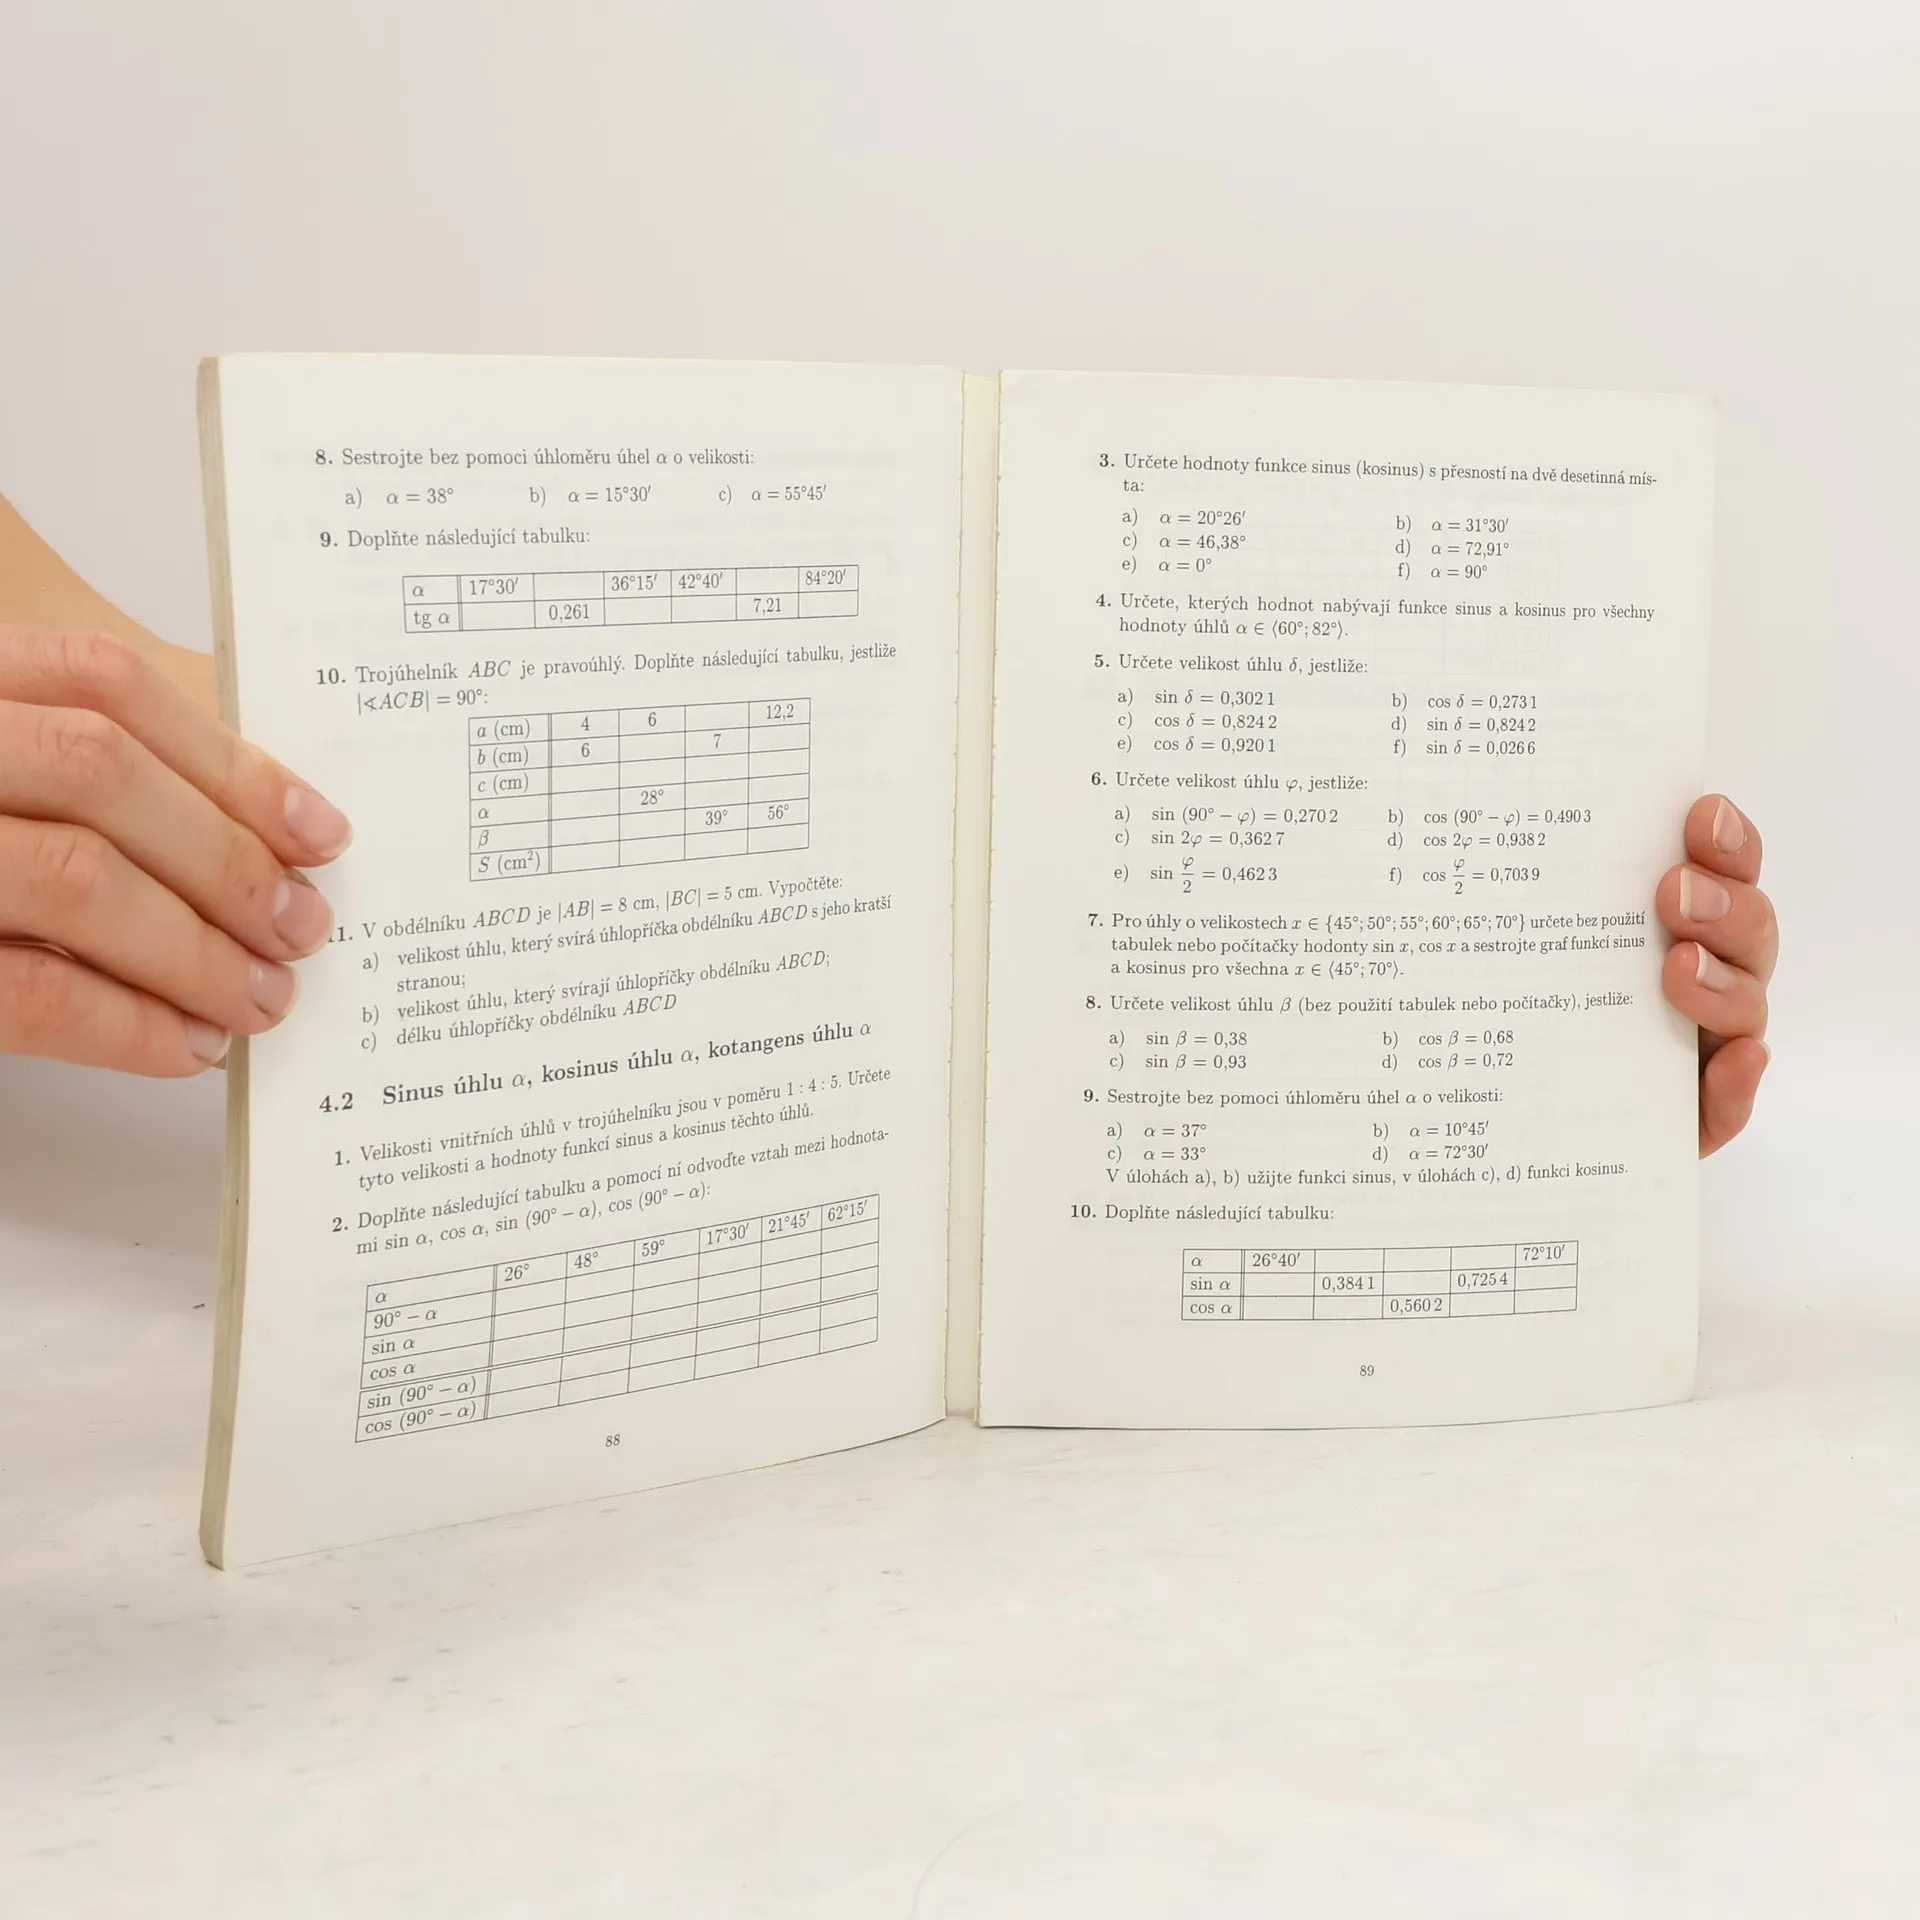 8. Sestrojte bez pomoci úhloměru úhel α o velikosti:
a) α = 38° b) α = 15°30′ c) α = 55°45′
9. Doplňte následující tabulku:
α 17°30′ 36°15′ 42°40′ 84°20′
tg α 0,261 7,21
10. Trojúhelník ABC je pravoúhlý. Doplňte následující tabulku, jestliže
|∢ACB| = 90°:
a (cm) 4 6 12,2
b (cm) 6 7
c (cm)
α 28°
β 39° 56°
S (cm²)
1. V obdélníku ABCD je |AB| = 8 cm, |BC| = 5 cm. Vypočtěte:
a) velikost úhlu, který svírá úhlopříčka obdélníku ABCD s jeho kratší
stranou;
b) velikost úhlu, který svírají úhlopříčky obdélníku ABCD;
c) délku úhlopříčky obdélníku ABCD
4.2 Sinus úhlu α, kosinus úhlu α, kotangens úhlu α
1. Velikosti vnitřních úhlů v trojúhelníku jsou v poměru 1 : 4 : 5. Určete
tyto velikosti a hodnoty funkcí sinus a kosinus těchto úhlů.
2. Doplňte následující tabulku a pomocí ní odvoďte vztah mezi hodnota-
mi sin α, cos α, sin (90° − α), cos (90° − α):
α 26° 48° 59° 17°30′ 21°45′ 62°15′
90° − α
sin α
cos α
sin (90° − α)
cos (90° − α)
88
3. Určete hodnoty funkce sinus (kosinus) s přesností na dvě desetinná mís-
ta:
a) α = 20°26′ b) α = 31°30′
c) α = 46,38° d) α = 72,91°
e) α = 0° f) α = 90°
4. Určete, kterých hodnot nabývají funkce sinus a kosinus pro všechny
hodnoty úhlů α ∈ ⟨60°; 82°⟩.
5. Určete velikost úhlu δ, jestliže:
a) sin δ = 0,302 1 b) cos δ = 0,273 1
c) cos δ = 0,824 2 d) sin δ = 0,824 2
e) cos δ = 0,920 1 f) sin δ = 0,026 6
6. Určete velikost úhlu φ, jestliže:
a) sin (90° − φ) = 0,270 2 b) cos (90° − φ) = 0,490 3
c) sin 2φ = 0,362 7 d) cos 2φ = 0,938 2
e) sin φ/2 = 0,462 3 f) cos φ/2 = 0,703 9
7. Pro úhly o velikostech x ∈ {45°; 50°; 55°; 60°; 65°; 70°} určete bez použití
tabulek nebo počítačky hodonty sin x, cos x a sestrojte graf funkcí sinus
a kosinus pro všechna x ∈ ⟨45°; 70°⟩.
8. Určete velikost úhlu β (bez použití tabulek nebo počítačky), jestliže:
a) sin β = 0,38 b) cos β = 0,68
c) sin β = 0,93 d) cos β = 0,72
9. Sestrojte bez pomoci úhloměru úhel α o velikosti:
a) α = 37° b) α = 10°45′
c) α = 33° d) α = 72°30′
V úlohách a), b) užijte funkci sinus, v úlohách c), d) funkci kosinus.
10. Doplňte následující tabulku:
α 26°40′ 72°10′
sin α 0,384 1 0,725 4
cos α 0,560 2
89